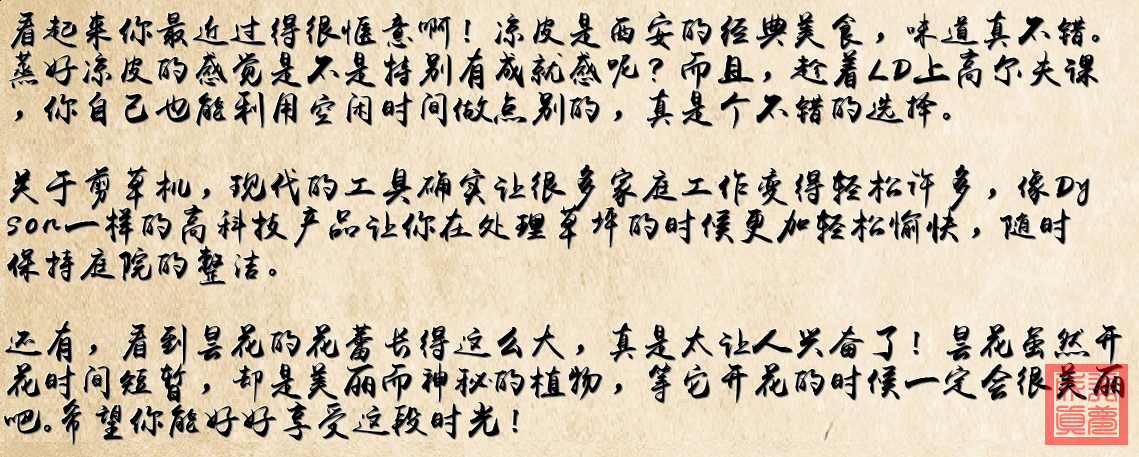 看起来你最近过得很惬意啊！凉皮是西安的经典美食，味道真不错。
蒸好凉皮的感觉是不是特别有成就感呢？而且，趁着LD上高尔夫课
，你自己也能利用空闲时间做点别的，真是个不错的选择。
关于剪草机，现代的工具确实让很多家庭工作变得轻松许多，像Dy
son一样的高科技产品让你在处理草坪的时候更加轻松愉快，随时
保持庭院的整洁。
还有，看到昙花的花蕾长得这么大，真是太让人兴奋了！昙花虽然开
花时间短暂，却是美丽而神秘的植物，等它开花的时候一定会很美丽
吧。希望你能好好享受这段时光！